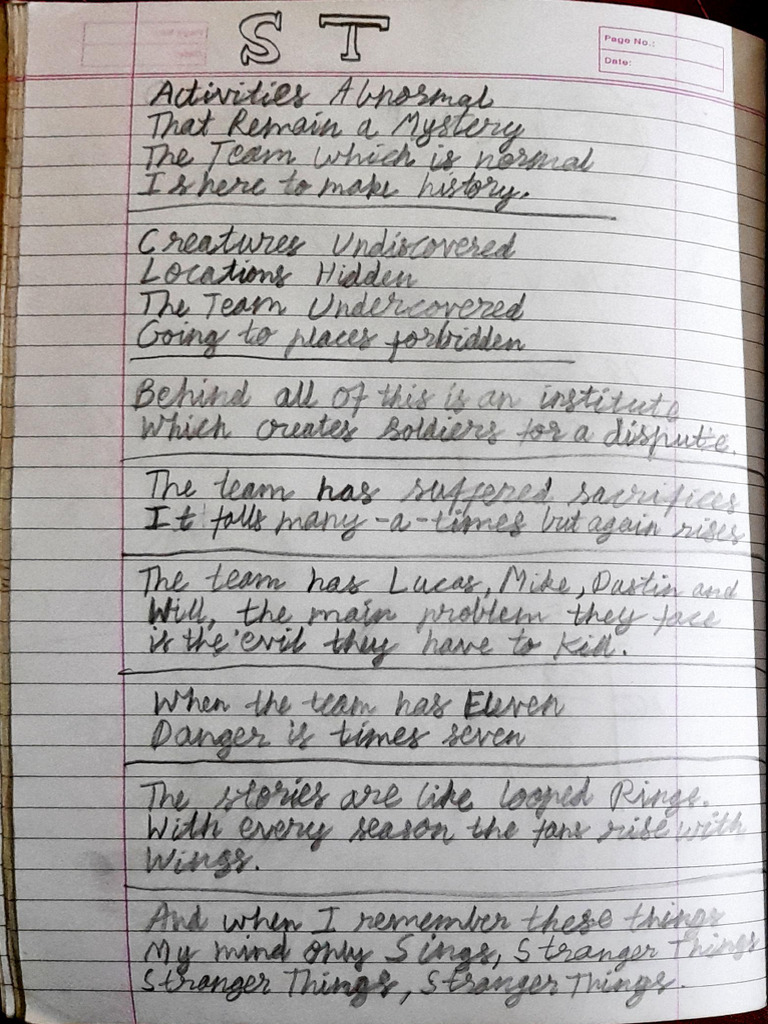 S T
Page No.:
Date:
Activities Abnormal
That Remain a Mystery
The Team which is normal
Is here to make history.
Creatures Undiscovered
Locations Hidden
The Team Undercovered
Going to places forbidden
Behind all of this is an institute
Which creates soldiers for a dispute.
The team has suffered sacrifices
It falls many-a-times but again rises
The team has Lucas, Mike, Dustin and
Will, the main problem they face
is the evil they have to Kill.
When the team has Eleven
Danger is times seven
The stories are like looped Rings.
With every season the fans rise with
Wings.
And when I remember these things
My mind only Sings, Stranger Things
Stranger Things, Stranger Things.